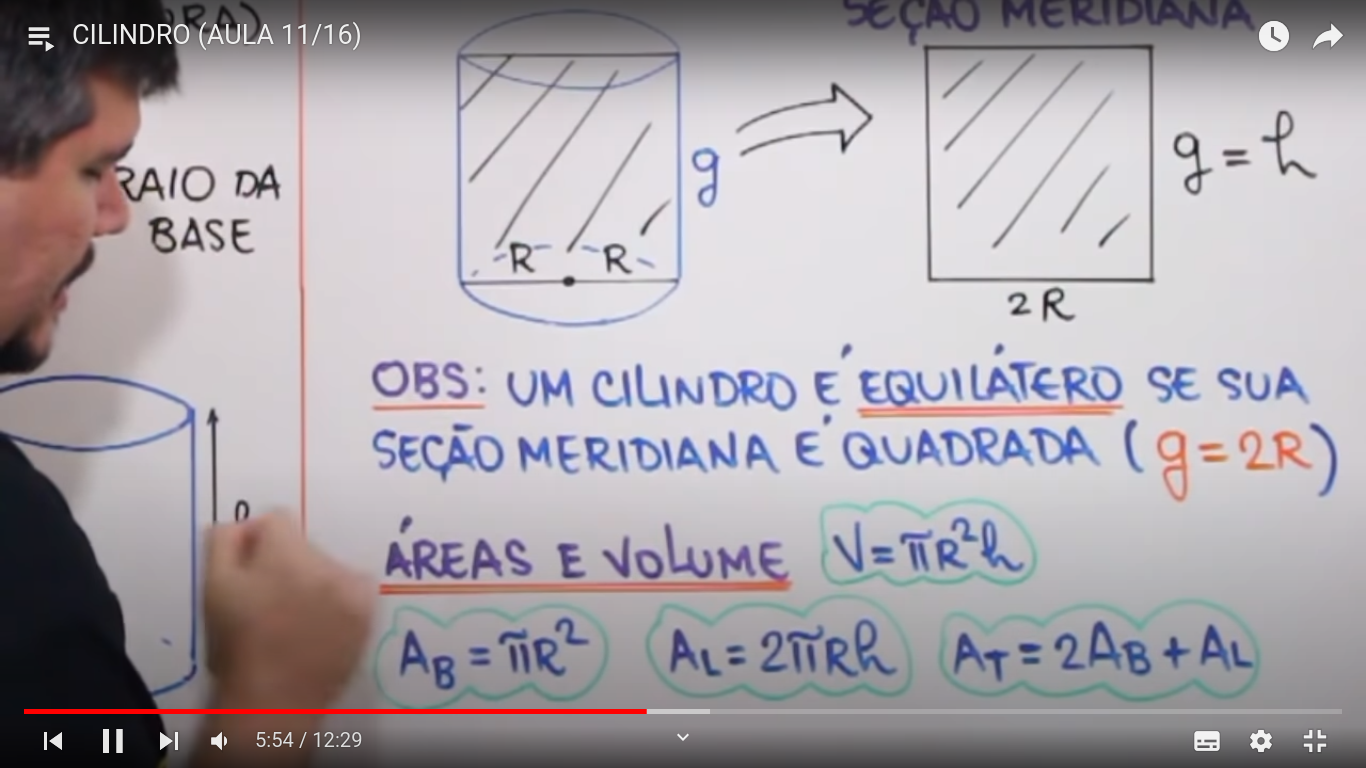 CILINDRO (AULA 11/16)
SEÇÃO MERIDIANA
RAIO DA
BASE
g
R
R
g = h
2R
OBS: UM CILINDRO É EQUILÁTERO SE SUA
SEÇÃO MERIDIANA É QUADRADA (g = 2R)
ÁREAS E VOLUME
V = πR²h
A_B = πR²
A_L = 2πRh
A_T = 2A_B + A_L
5:54 / 12:29